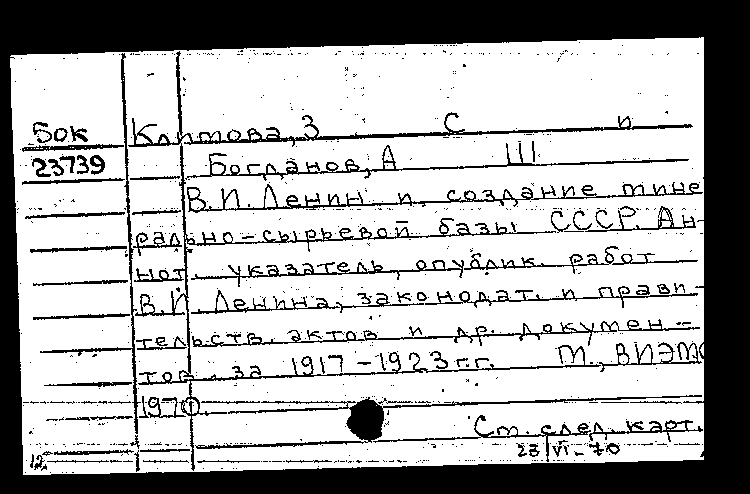 Бок Климова, З С и
23739 Богданов, А Ш
В.И. Ленин и создание мине
рально-сырьевой базы СССР. Ан-
нот. указатель, опублик. работ
В.И. Ленина, законодат. и прави-
тельств. актов и др. докумен-
тов за 1917-1923 г.г. М., ВИЭМС
1970.
Ст. след. карт.
12. 23/VI-70